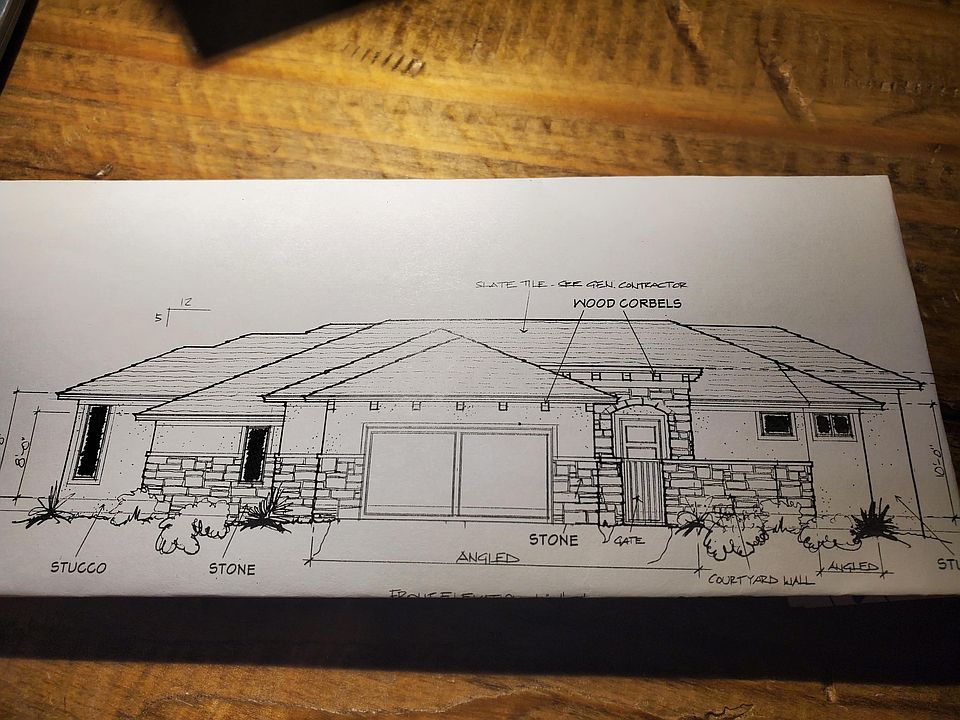 SLATE TILE - SEE GEN. CONTRACTOR
WOOD CORBELS
12
5
8'-0"
10'-0"
STONE
GATE
ANGLED
STUCCO
STONE
COURTYARD WALL
ANGLED